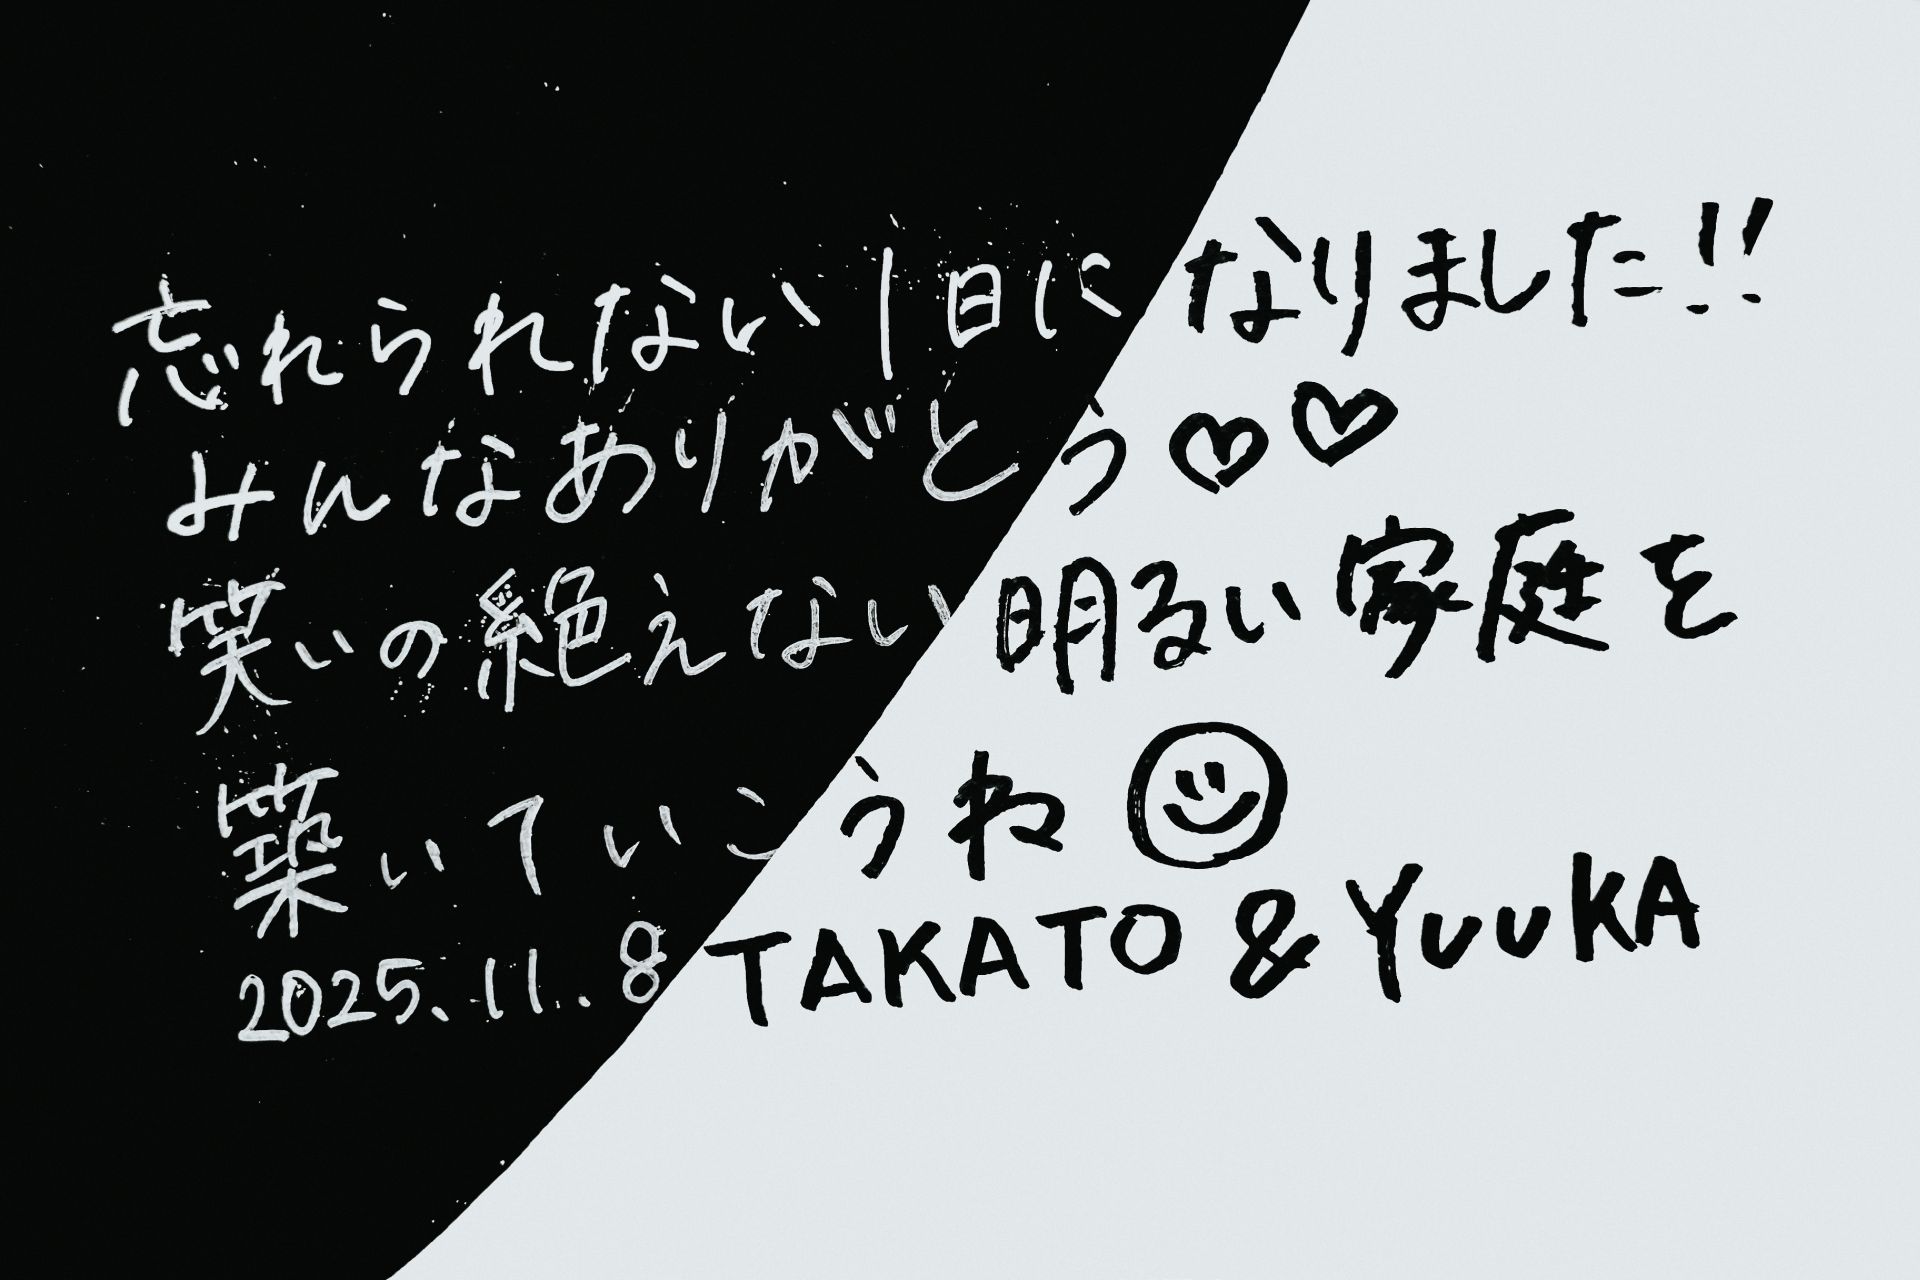 忘れられない1日になりました!!
みんなありがとう♡♡
笑いの絶えない明るい家庭を
築いていこうね
2025.11.8 TAKATO & YUUKA